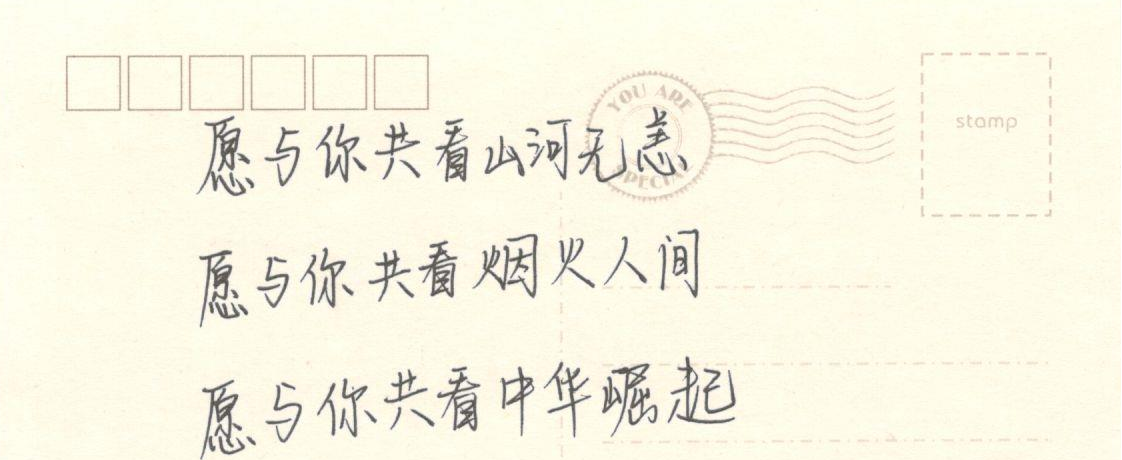 YOU ARE SPECIAL
stamp
愿与你共看山河无恙
愿与你共看烟火人间
愿与你共看中华崛起